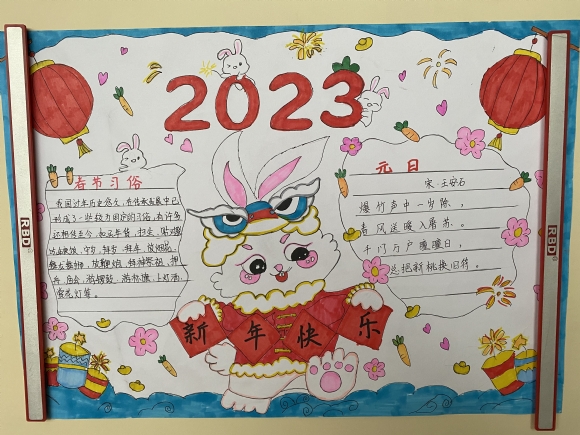 2023
春节习俗
我国过年历史悠久，在传承发展中已
形成了一些较为固定的习俗，有许多
还相传至今，如买年货、扫尘、贴对联、
吃年夜饭、守岁、拜岁、拜年、放烟花、
舞龙舞狮、
年、庙会、游锣鼓、游标旗、上灯酒、
赏花灯等。
元日
宋·王安石
爆竹声中一岁除，
春风送暖入屠苏。
千门万户曈曈日，
总把新桃换旧符。
新年快乐
RBD
RBD